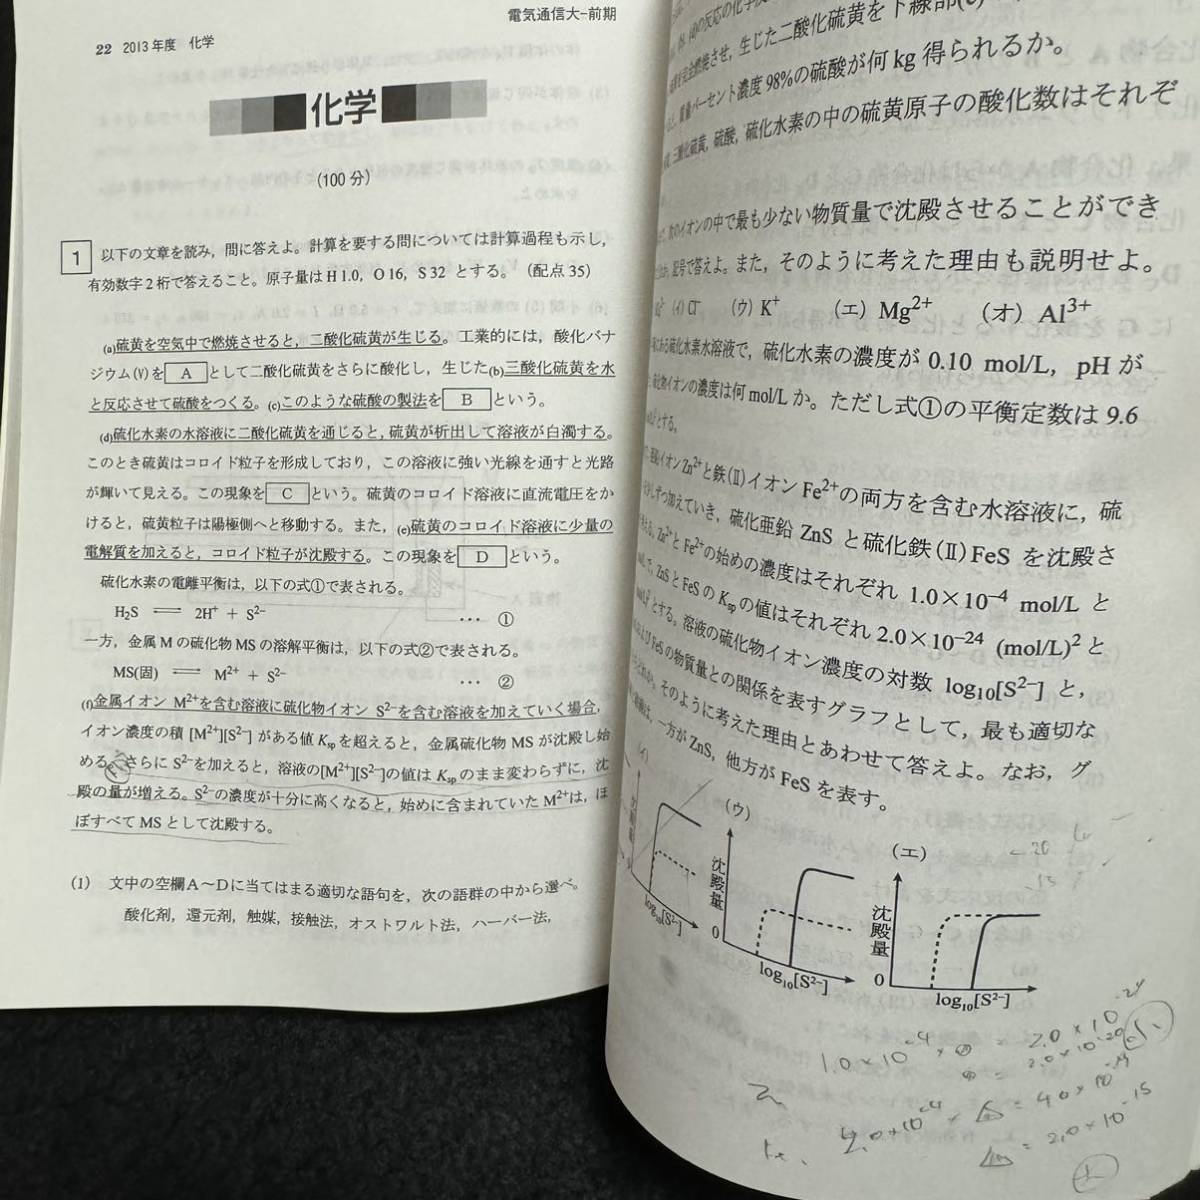 電気通信大-前期
22 2013年度 化学
化学
(100分)
1 以下の文章を読み，問に答えよ。計算を要する問については計算過程も示し，
有効数字2桁で答えること。原子量は H 1.0，O 16，S 32 とする。（配点35）
(a)硫黄を空気中で燃焼させると，二酸化硫黄が生じる。工業的には，酸化バナ
ジウム(V)を A として二酸化硫黄をさらに酸化し，生じた(b)三酸化硫黄を水
と反応させて硫酸をつくる。(c)このような硫酸の製法を B という。
(d)硫化水素の水溶液に二酸化硫黄を通じると，硫黄が析出して溶液が白濁する。
このとき硫黄はコロイド粒子を形成しており，この溶液に強い光線を通すと光路
が輝いて見える。この現象を C という。硫黄のコロイド溶液に直流電圧をか
けると，硫黄粒子は陽極側へと移動する。また，(e)硫黄のコロイド溶液に少量の
電解質を加えると，コロイド粒子が沈殿する。この現象を D という。
硫化水素の電離平衡は，以下の式①で表される。
H₂S ⇌ 2H⁺ + S²⁻ … ①
一方，金属 M の硫化物 MS の溶解平衡は，以下の式②で表される。
MS(固) ⇌ M²⁺ + S²⁻ … ②
(f)金属イオン M²⁺を含む溶液に硫化物イオン S²⁻を含む溶液を加えていく場合，
イオン濃度の積 [M²⁺][S²⁻] がある値 Kspを超えると，金属硫化物 MS が沈殿し始
める。さらに S²⁻を加えると，溶液の[M²⁺][S²⁻]の値は Kspのまま変わらずに，沈
殿の量が増える。S²⁻の濃度が十分に高くなると，始めに含まれていた M²⁺は，ほ
ぼすべて MS として沈殿する。
(1) 文中の空欄A〜Dに当てはまる適切な語句を，次の語群の中から選べ。
酸化剤，還元剤，触媒，接触法，オストワルト法，ハーバー法，
の反応の化学
完全燃焼させ，生じた二酸化硫黄を下線部(c)
質量パーセント濃度98%の硫酸が何kg得られるか。
三酸化硫黄，硫酸，硫化水素の中の硫黄原子の酸化数はそれぞ
次のイオンの中で最も少ない物質量で沈殿させることができ
記号で答えよ。また，そのように考えた理由も説明せよ。
(イ) Cl⁻ (ウ) K⁺ (エ) Mg²⁺ (オ) Al³⁺
にある硫化水素水溶液で，硫化水素の濃度が 0.10 mol/L，pH が
イオンの濃度は何 mol/L か。ただし式①の平衡定数は 9.6
とする。
亜鉛イオン Zn²⁺と鉄(II)イオン Fe²⁺の両方を含む水溶液に，硫
少しずつ加えていき，硫化亜鉛 ZnS と硫化鉄(II) FeS を沈殿さ
Zn²⁺と Fe²⁺の始めの濃度はそれぞれ 1.0×10⁻⁴ mol/L と
ZnSとFeSの Kspの値はそれぞれ 2.0×10⁻²⁴ (mol/L)² と
とする。溶液の硫化物イオン濃度の対数 log₁₀[S²⁻] と，
および FeSの物質量との関係を表すグラフとして，最も適切な
そのように考えた理由とあわせて答えよ。なお，グ
は，一方が ZnS，他方が FeS を表す。
(イ)
沈殿量
0
log₁₀[S²⁻]
(ウ)
沈殿量
0
log₁₀[S²⁻]
(エ)
沈殿量
0
log₁₀[S²⁻]
-20
1.0×10⁻⁴× = 2.0×10⁻²⁴
= 2.0×10⁻²⁰
= 4.0×10⁻¹⁹
= 2.0×10⁻¹⁵